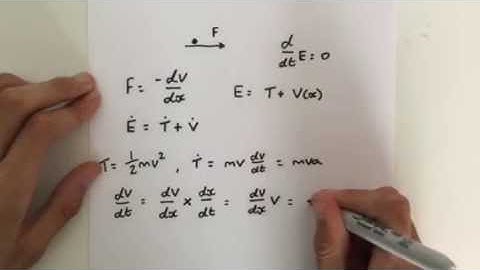 F
d/dt E = 0
F = -dV/dx
E = T + V(x)
Ė = Ṫ + V̇
T = 1/2 mv² , Ṫ = mv dv/dt = mva
dV/dt = dV/dx × dx/dt = dV/dx v =